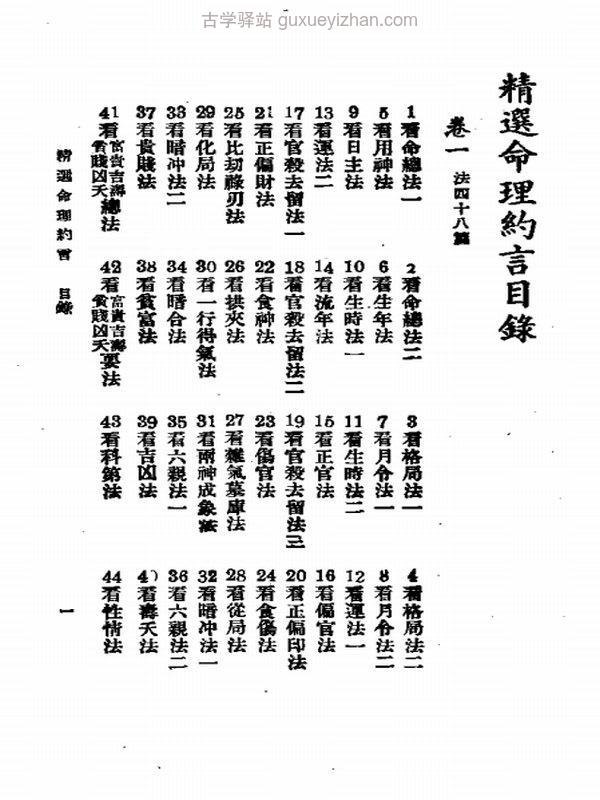 古学驿站 guxueyizhan.com
精選命理約言目錄
卷一 法四十八篇
1看命總法一
2看命總法二
3看格局法一
4看格局法二
5看用神法
6看生年法
7看月令法一
8看月令法二
9看日主法
10看生時法一
11看生時法二
12看運法一
13看運法二
14看流年法
15看正官法
16看偏官法
17看官殺去留法一
18看官殺去留法二
19看官殺去留法三
20看正偏印法
21看正偏財法
22看食神法
23看傷官法
24看食傷法
25看比刧祿刃法
26看拱夾法
27看雜氣墓庫法
28看從局法
29看化局法
30看一行得氣法
31看兩神成象法
32看暗冲法一
33看暗冲法二
34看暗合法
35看六親法一
36看六親法二
37看貴賤法
38看貧富法
39看吉凶法
40看壽夭法
41看富貴吉壽貧賤凶夭總法
42看富貴吉壽貧賤凶夭要法
43看科第法
44看性情法
精選命理約言 目錄
一